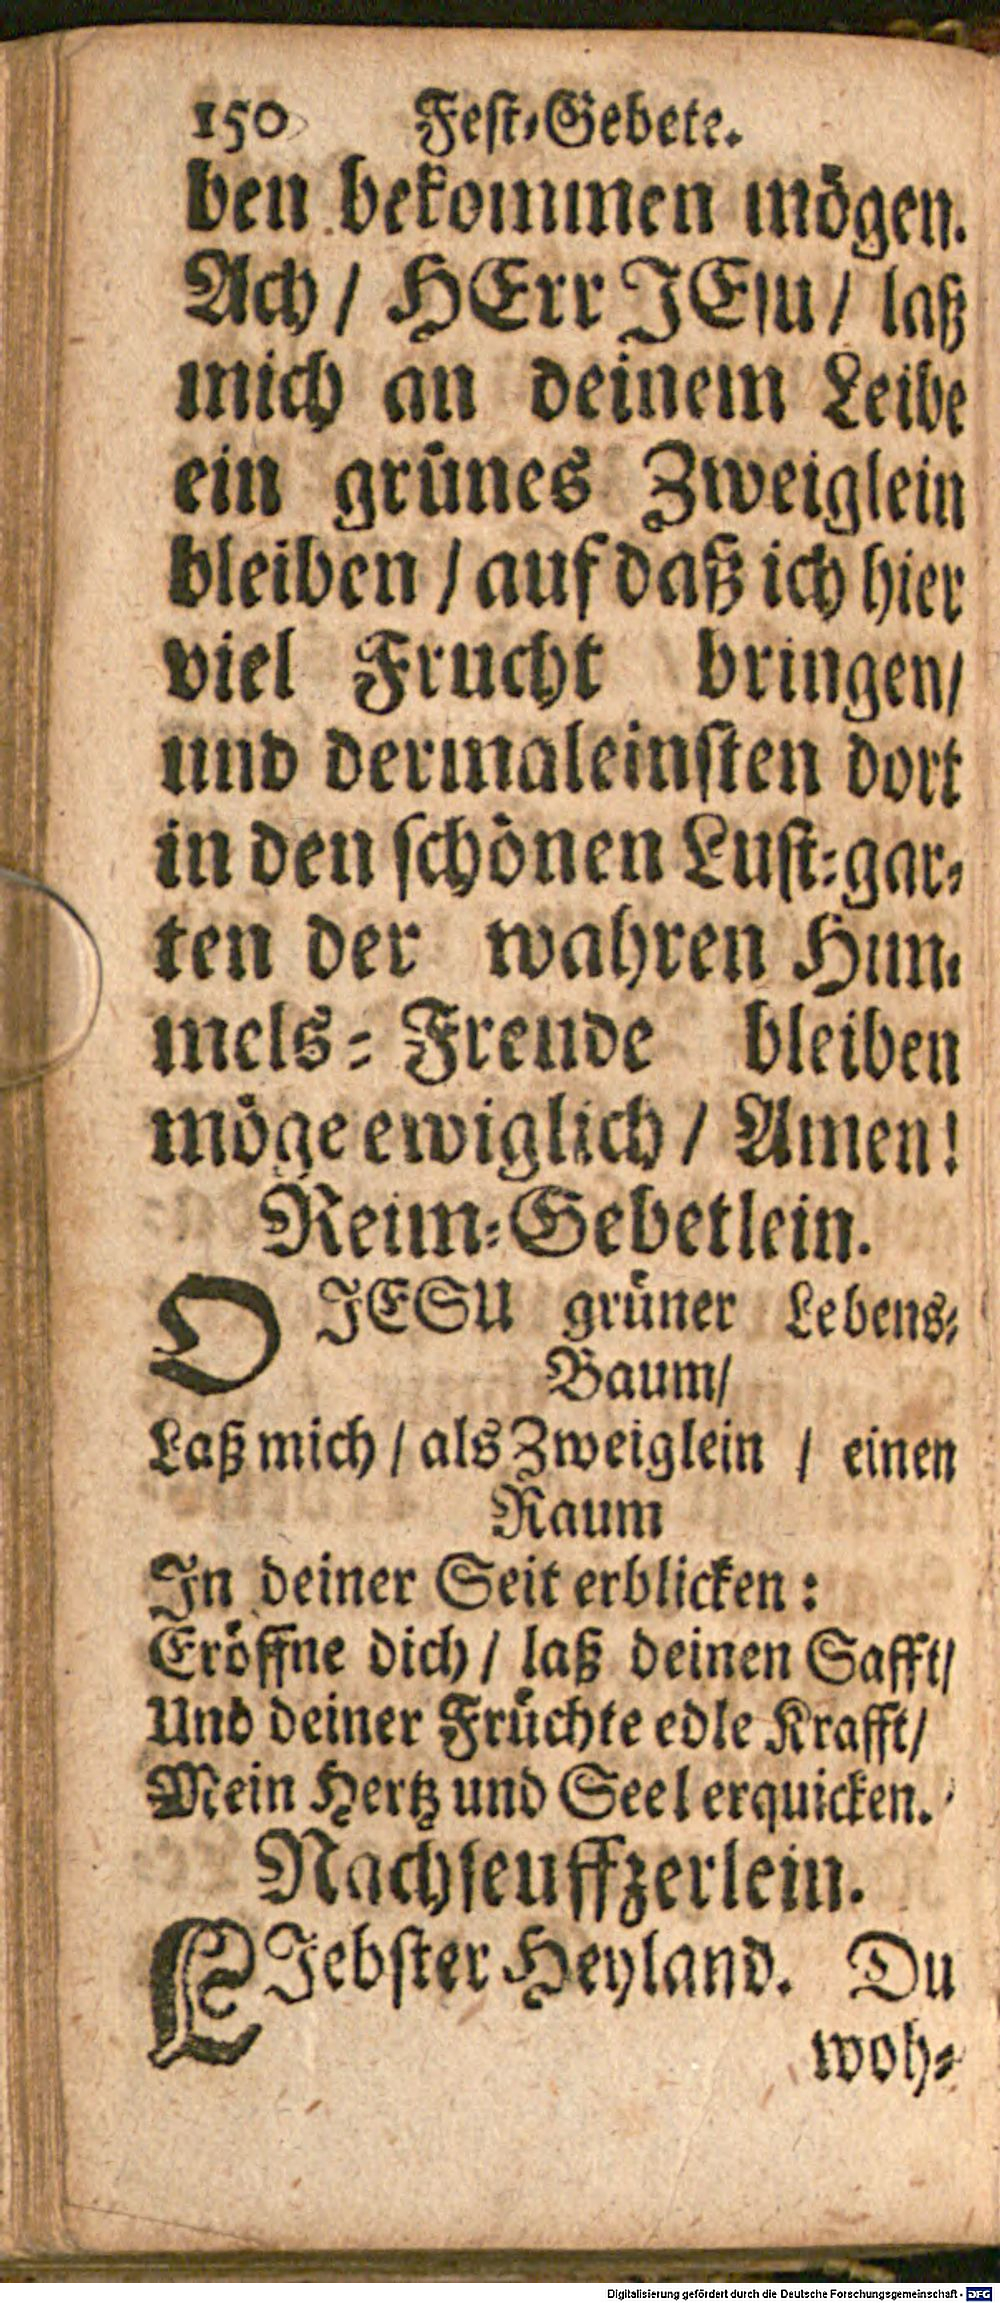 150 Fest-Gebete.
ben bekommen mögen.
Ach / HErr JEsu / laß
mich an deinem Leibe
ein grünes Zweiglein
bleiben / auf daß ich hier
viel Frucht bringen/
und dermaleinsten dort
in den schönen Lust-gar-
ten der wahren Him-
mels-Freude bleiben
möge ewiglich / Amen!
Reim-Gebetlein.
O JESU grüner Lebens-
Baum/
Laß mich / als Zweiglein / einen
Raum
In deiner Seit erblicken:
Eröffne dich / laß deinen Safft/
Und deiner Früchte edle Krafft/
Mein Hertz und Seel erquicken.
Nachseuffzerlein.
LIebster Heyland. Du
woh-
Digitalisierung gefördert durch die Deutsche Forschungsgemeinschaft - DFG